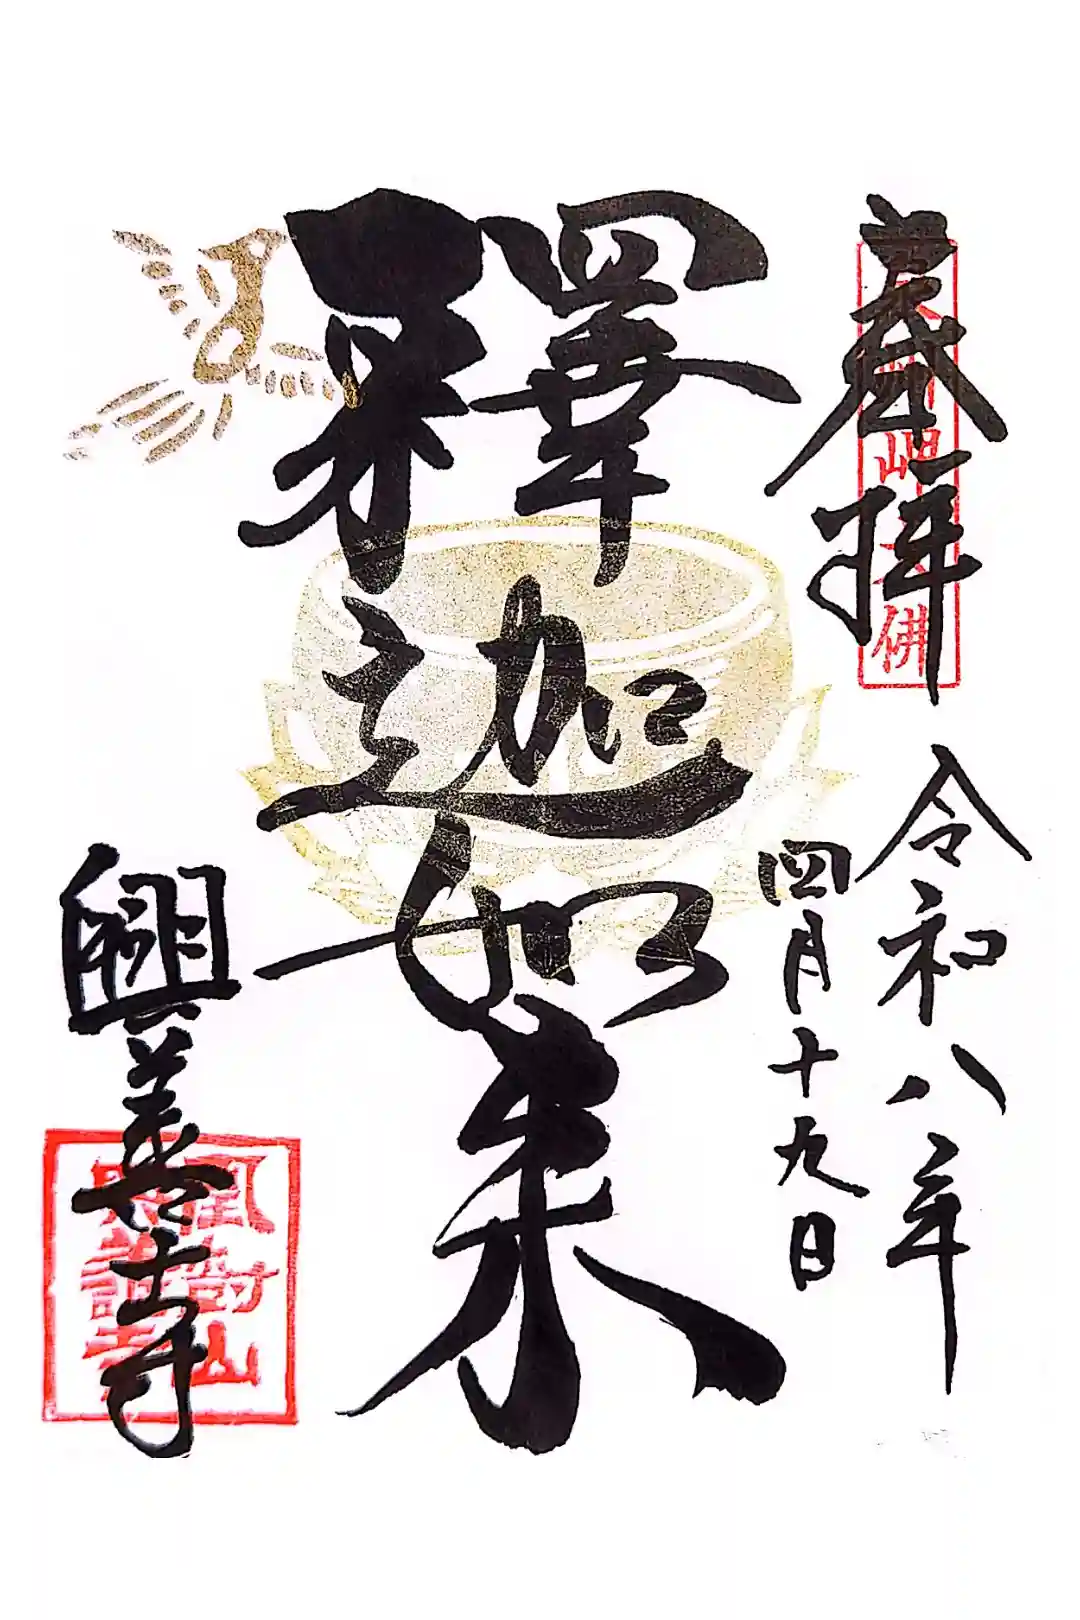 拝
令和八年
四月十九日
釋迦如来
興善寺
佛
山